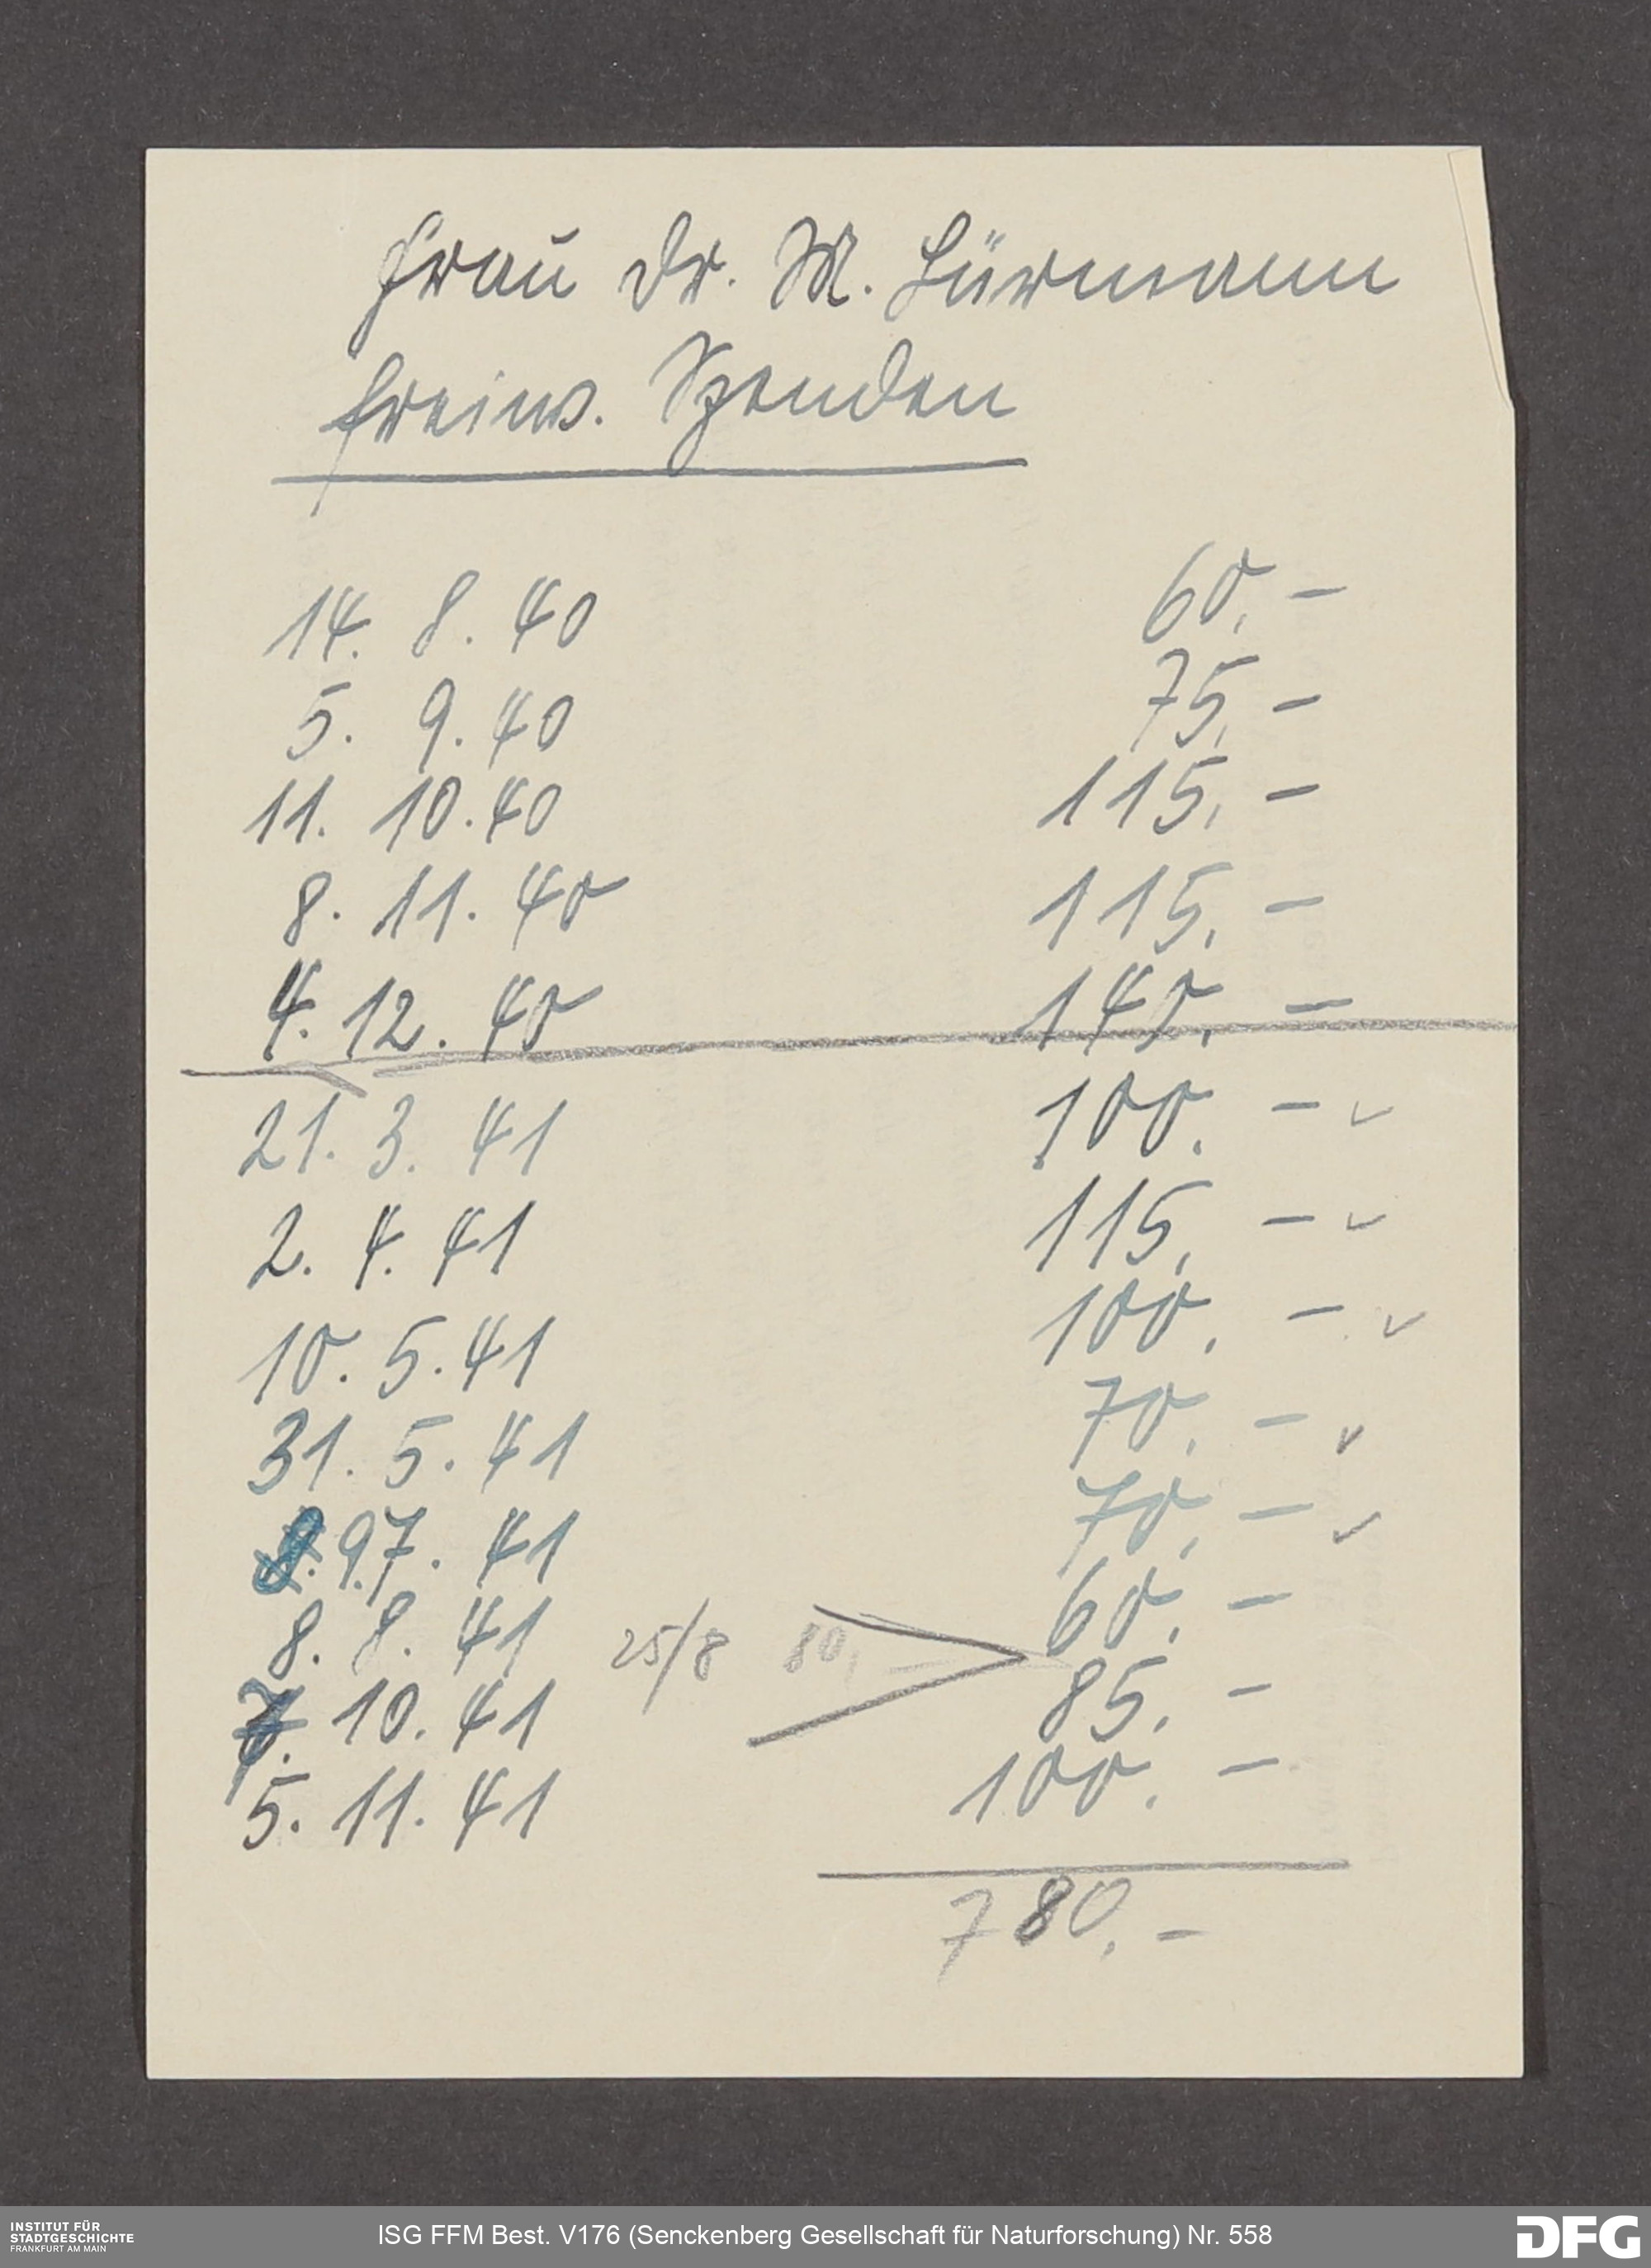 Frau Dr. M. Lürmann
freiw. Spenden
14. 8. 40 60,-
5. 9. 40 75,-
11. 10. 40 115,-
8. 11. 40 115,-
4. 12. 40 140,-
21. 3. 41 100,- ✓
2. 4. 41 115,- ✓
10. 5. 41 100,- ✓
31. 5. 41 70,- ✓
9.7. 41 70,- ✓
8. 8. 41 25/8 80,- 60,-
10. 41 85,-
5. 11. 41 100,-
780,-
INSTITUT FÜR
STADTGESCHICHTE
FRANKFURT AM MAIN
ISG FFM Best. V176 (Senckenberg Gesellschaft für Naturforschung) Nr. 558
DFG